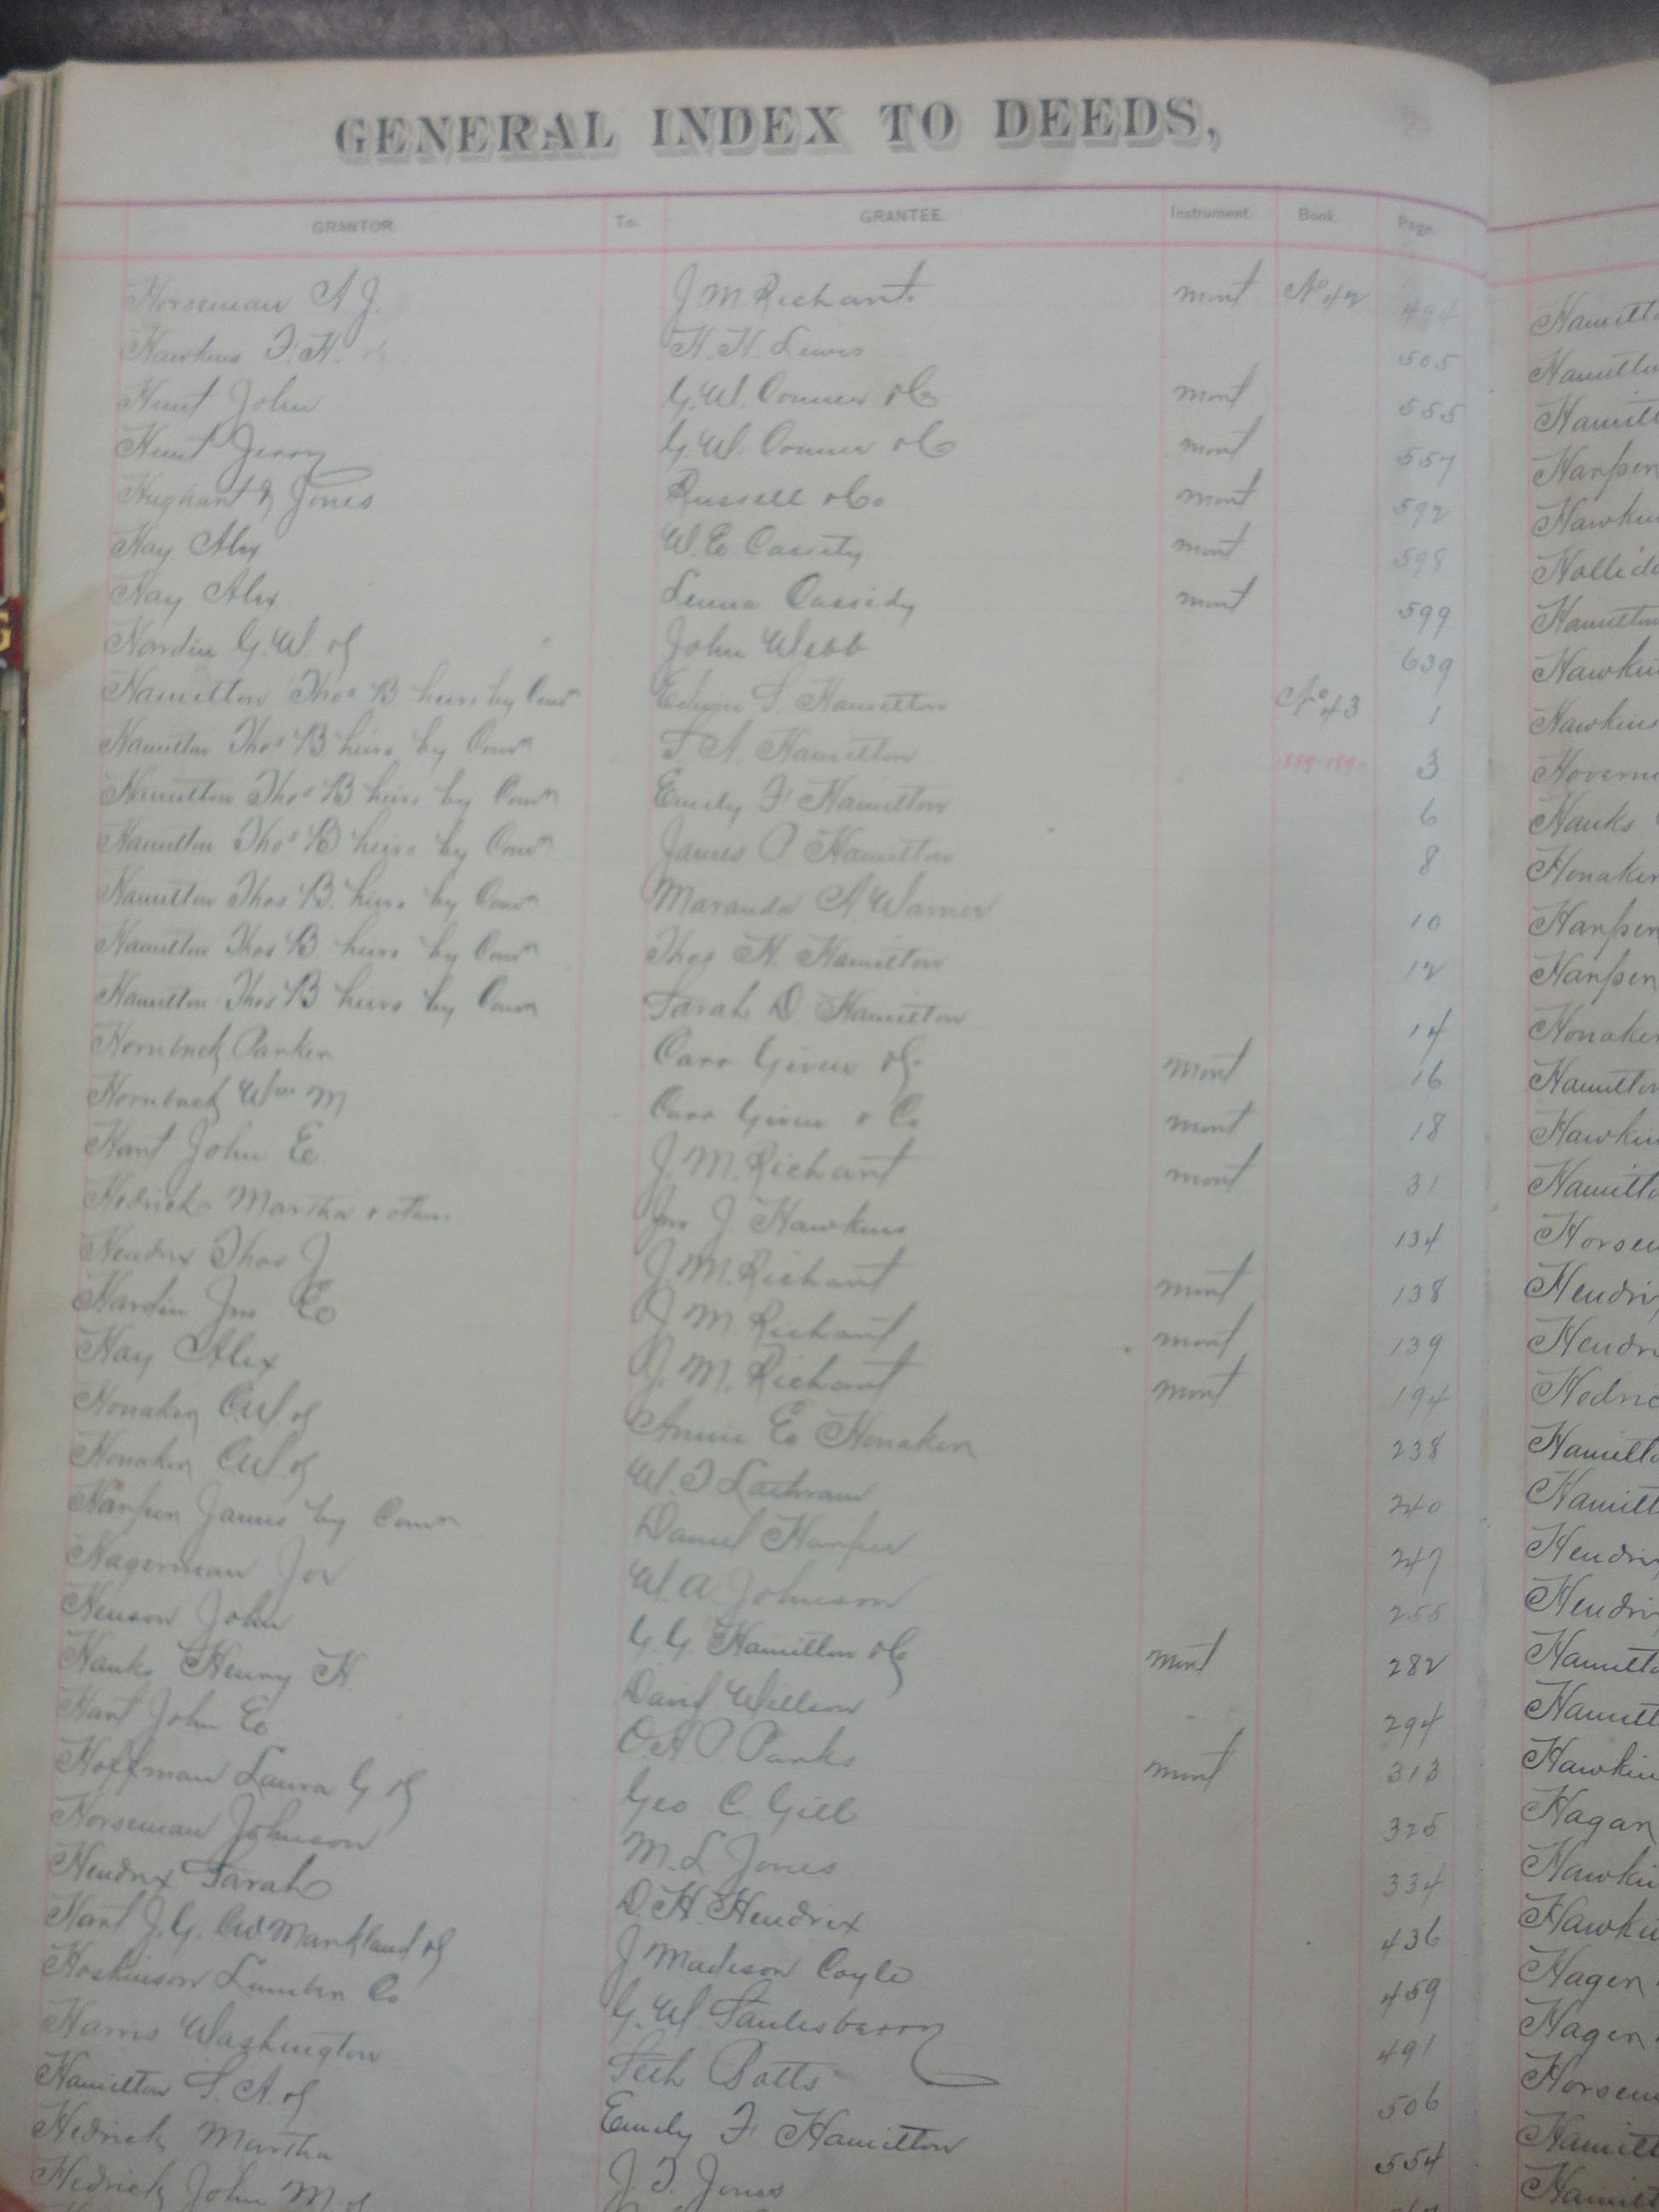 GENERAL INDEX TO DEEDS,
GRANTOR. To. GRANTEE. Instrument. Book. Page.
Horseman A J. J M. Richart. mort No 42 494
Hawkins F. H. H. H. Lewis 505
Hunt John G. W. Conner & Co mort 555
Hunt Jerry G. W. Conner & Co mort 557
Hughart & Jones Russell & Co mort 592
Hay Alex W. E. Cassity mort 598
Hay Alex Lenna Cassidy mort 599
Hardin G. W. &c John Webb 639
Hamilton Thos B heirs by Comr Edwin S. Hamilton No 43 1
Hamilton Thos B heirs by Comr S A. Hamilton 3
Hamilton Thos B heirs by Comr Emily F Hamilton 6
Hamilton Thos B heirs by Comr James P Hamilton 8
Hamilton Thos B. heirs by Comr Maranda A. Warner 10
Hamilton Thos B. heirs by Comr Thos H. Hamilton 12
Hamilton Thos B heirs by Comr Sarah D Hamilton 14
Hornback Parker Caro Given &c mort 16
Hornback Wm M Caro Given & Co mort 18
Hart John E. J. M. Richart mort 31
Hedrick Martha & others Jno J. Hawkins 134
Hendrix Thos J J M. Richart mort 138
Hardin Jno E J M. Richart mort 139
Hay Alex J. M. Richart mort 194
Honaker C W. &c Annie E Honaker 238
Honaker C W &c W. T Lathram 240
Harper James by Comr Daniel Harper 247
Hagerman Joe W. A. Johnson 255
Henson John G. G. Hamilton & Co mort 282
Hanks Henry H. David Willson 294
Hart John E O. H P Parks mort 313
Hoffman Laura G &c Geo C. Gill 325
Horseman Johnson M. L Jones 334
Hendrix Sarah D. H. Hendrix 436
Hart J. G. C W Markland &c J Madison Coyle 459
Hoskinson Lumber Co G. W Saulesberry 491
Harris Washington Seth Botts 506
Hamilton S. A. &c Emily F Hamilton 554
Hedrick Martha J. T. Jones
Hedrick John M &c
Hanks
Hagan
Hagen
Hagen